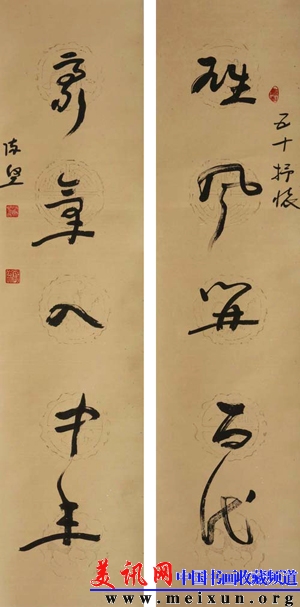 五十抒懷
雄風開百代
豪氣入中年
美讯网 中国书画收藏频道
www.meixun.org